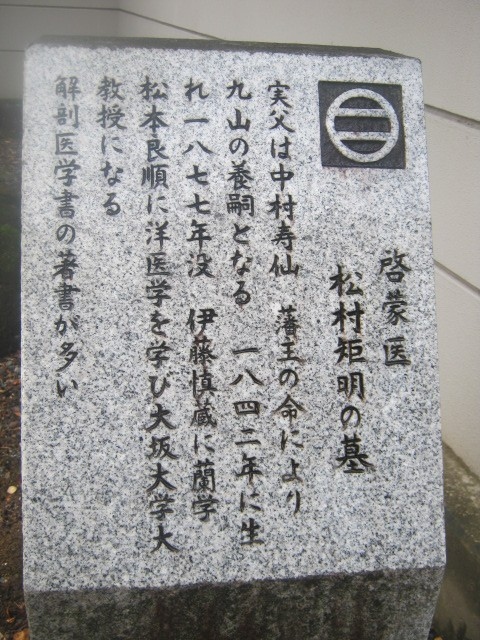 啓蒙医
松村矩明の墓
実父は中村寿仙 藩主の命により
九山の養嗣となる 一八四二年に生
れ一八七七年没 伊藤慎蔵に蘭学
松本良順に洋医学を学び大坂大学大
教授になる
解剖医学書の著書が多い